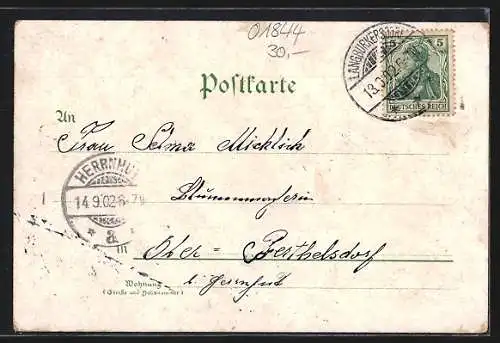 01844
30,-
Postkarte
LANGBURKERSDORF
13.9.02.
5 5
DEUTSCHES REICH
An
Frau Selma Micklich
HERRNHUT
14.9.02.6-7N.
* a
Blumenmacherin
in
Ober-Berthelsdorf
b/ Herrnhut
Wohnung
(Straße und Hausnummer)